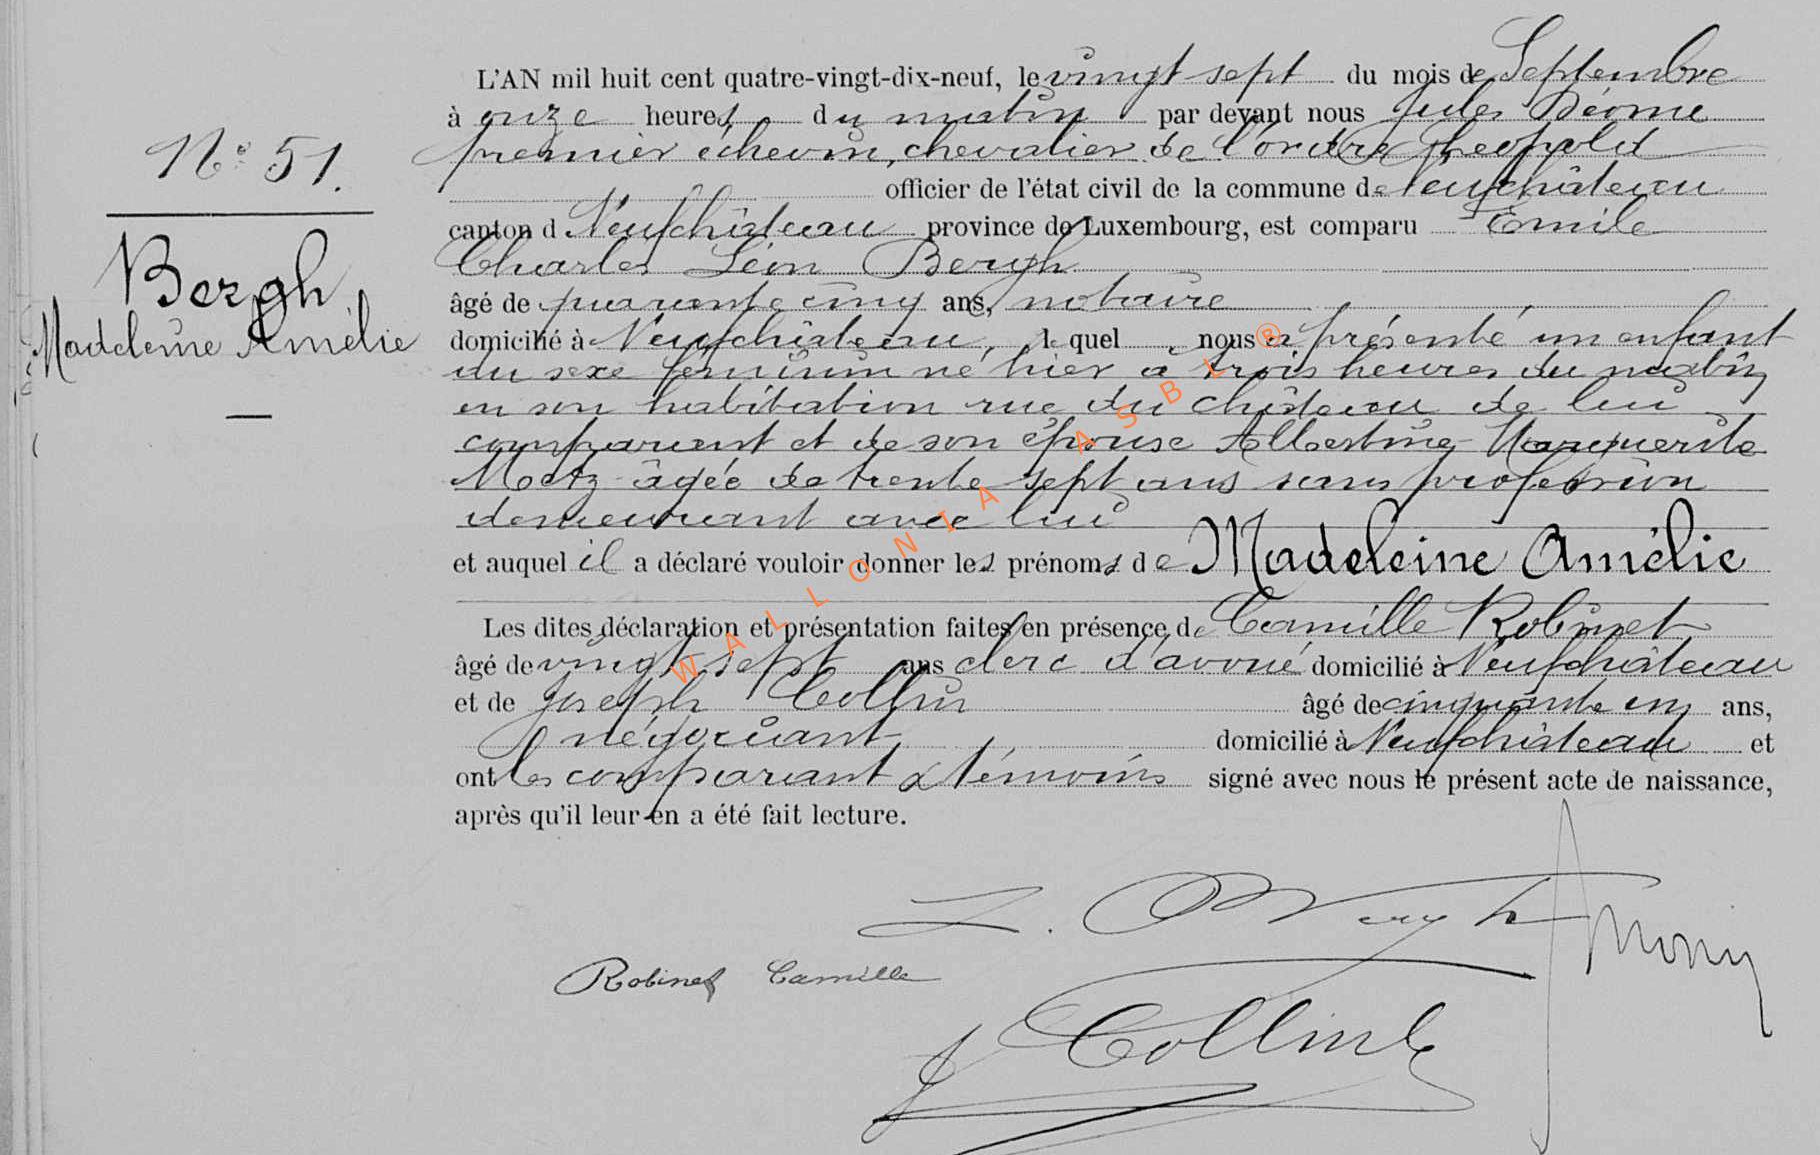 N° 51.
Bergh
Madeleine Amélie
L'AN mil huit cent quatre-vingt-dix-neuf, le vingt sept du mois de Septembre
à onze heures du matin par devant nous Jules
premier échevin, chevalier de l'ordre Léopold
officier de l'état civil de la commune de Neufchâteau
canton d Neufchâteau province de Luxembourg, est comparu Emile
Charles Léon Bergh
âgé de quarante cinq ans, notaire
domicilié à Neufchâteau, lequel nous a présenté un enfant
du sexe féminin né hier à trois heures du matin
en son habitation rue du château de lui
comparant et de son épouse Albertine Marguerite
Motz âgée de trente sept ans sans profession
demeurant avec lui
et auquel il a déclaré vouloir donner les prénoms de Madeleine Amélie
Les dites déclaration et présentation faites en présence de Camille Robinet
âgé de vingt sept ans clerc d'avoué domicilié à Neufchâteau
et de Joseph Collin âgé de cinquante un ans,
négociant domicilié à Neufchâteau et
ont les comparant & témoins signé avec nous le présent acte de naissance,
après qu'il leur en a été fait lecture.
L. Bergh
Robinet Camille
J Collin
WALLONIA ASBL®